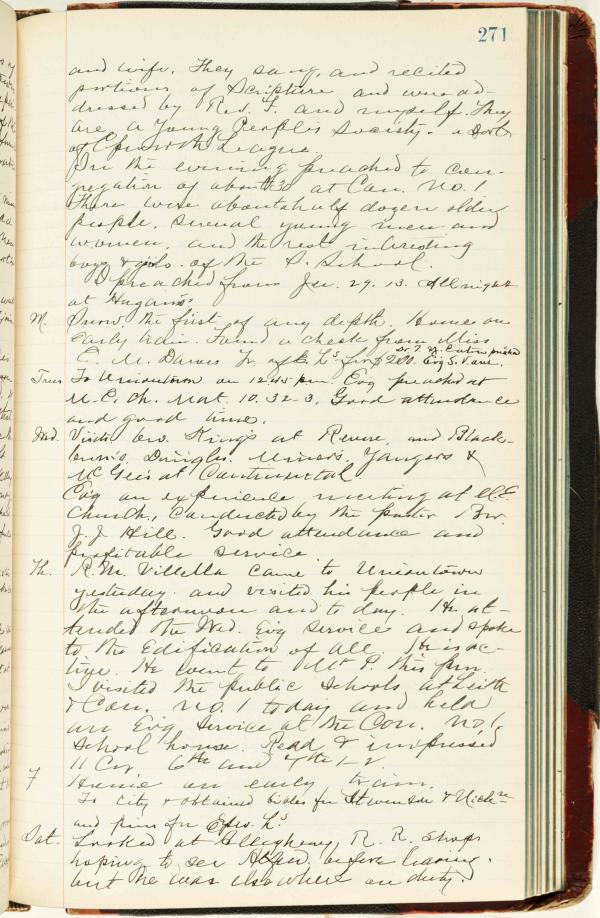 271
and wife. They sang, and recited
portions of Scripture and were ad-
dressed by Rev. F. and myself. They
are a Young People's Society - a sort
of Epworth League.
In the evening preached to con-
gregation of about 30 at Con. No. 1
There were about a half dozen older
people, several young men and
women, and the rest interesting
boys & girls of the S. School.
I preached from Jer. 29.13. All night
at Hagans.
M. Snow the first of any depth. Home on
early train. Found a check from Miss
E. M. Davis Tr. of for $200. Evg S. V. ave.
Dr. T. M. Eaton preached
Tues To Uniontown on 12.45 pm. Evg preached at
M.E. Ch. Mat. 10.32-3. Good attendance
and good time.
Wed. Visits bro. King's at Revere, and Black-
burn's, Miners, Yangers &
McGee's at Continental.
Evg an experience meeting at M.E.
Church, conducted by the pastor Bro.
J. J. Hill. Good attendance and
profitable service
Th. R. M. Villella came to Uniontown
yesterday and visited his people in
the afternoon and to day. He at-
tended the Wed. Evg service and spoke
to the edification of all. He is ac-
tive. He went to Mt P. this pm.
I visited the public schools at Leith
& Con. No. 1 today and held
an Evg service at the Con. No 1
School house. Read & impressed
11 Cor 6th and 7th 1-2.
F Home on early train.
To city & obtained bibles for &
and pins for Epw. Ls
Sat. Looked at Allegheny R. R. Shops
hoping to see before leaving.
but he was elsewhere on duty.